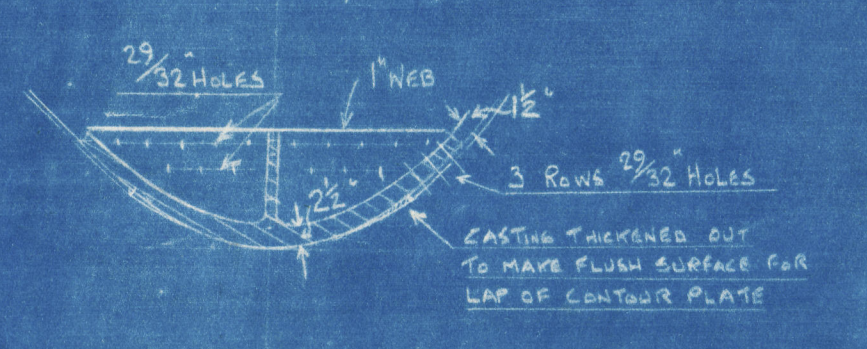 29/32" HOLES
1" WEB
1½"
2½"
3 ROWS 29/32" HOLES
CASTING THICKENED OUT
TO MAKE FLUSH SURFACE FOR
LAP OF CONTOUR PLATE